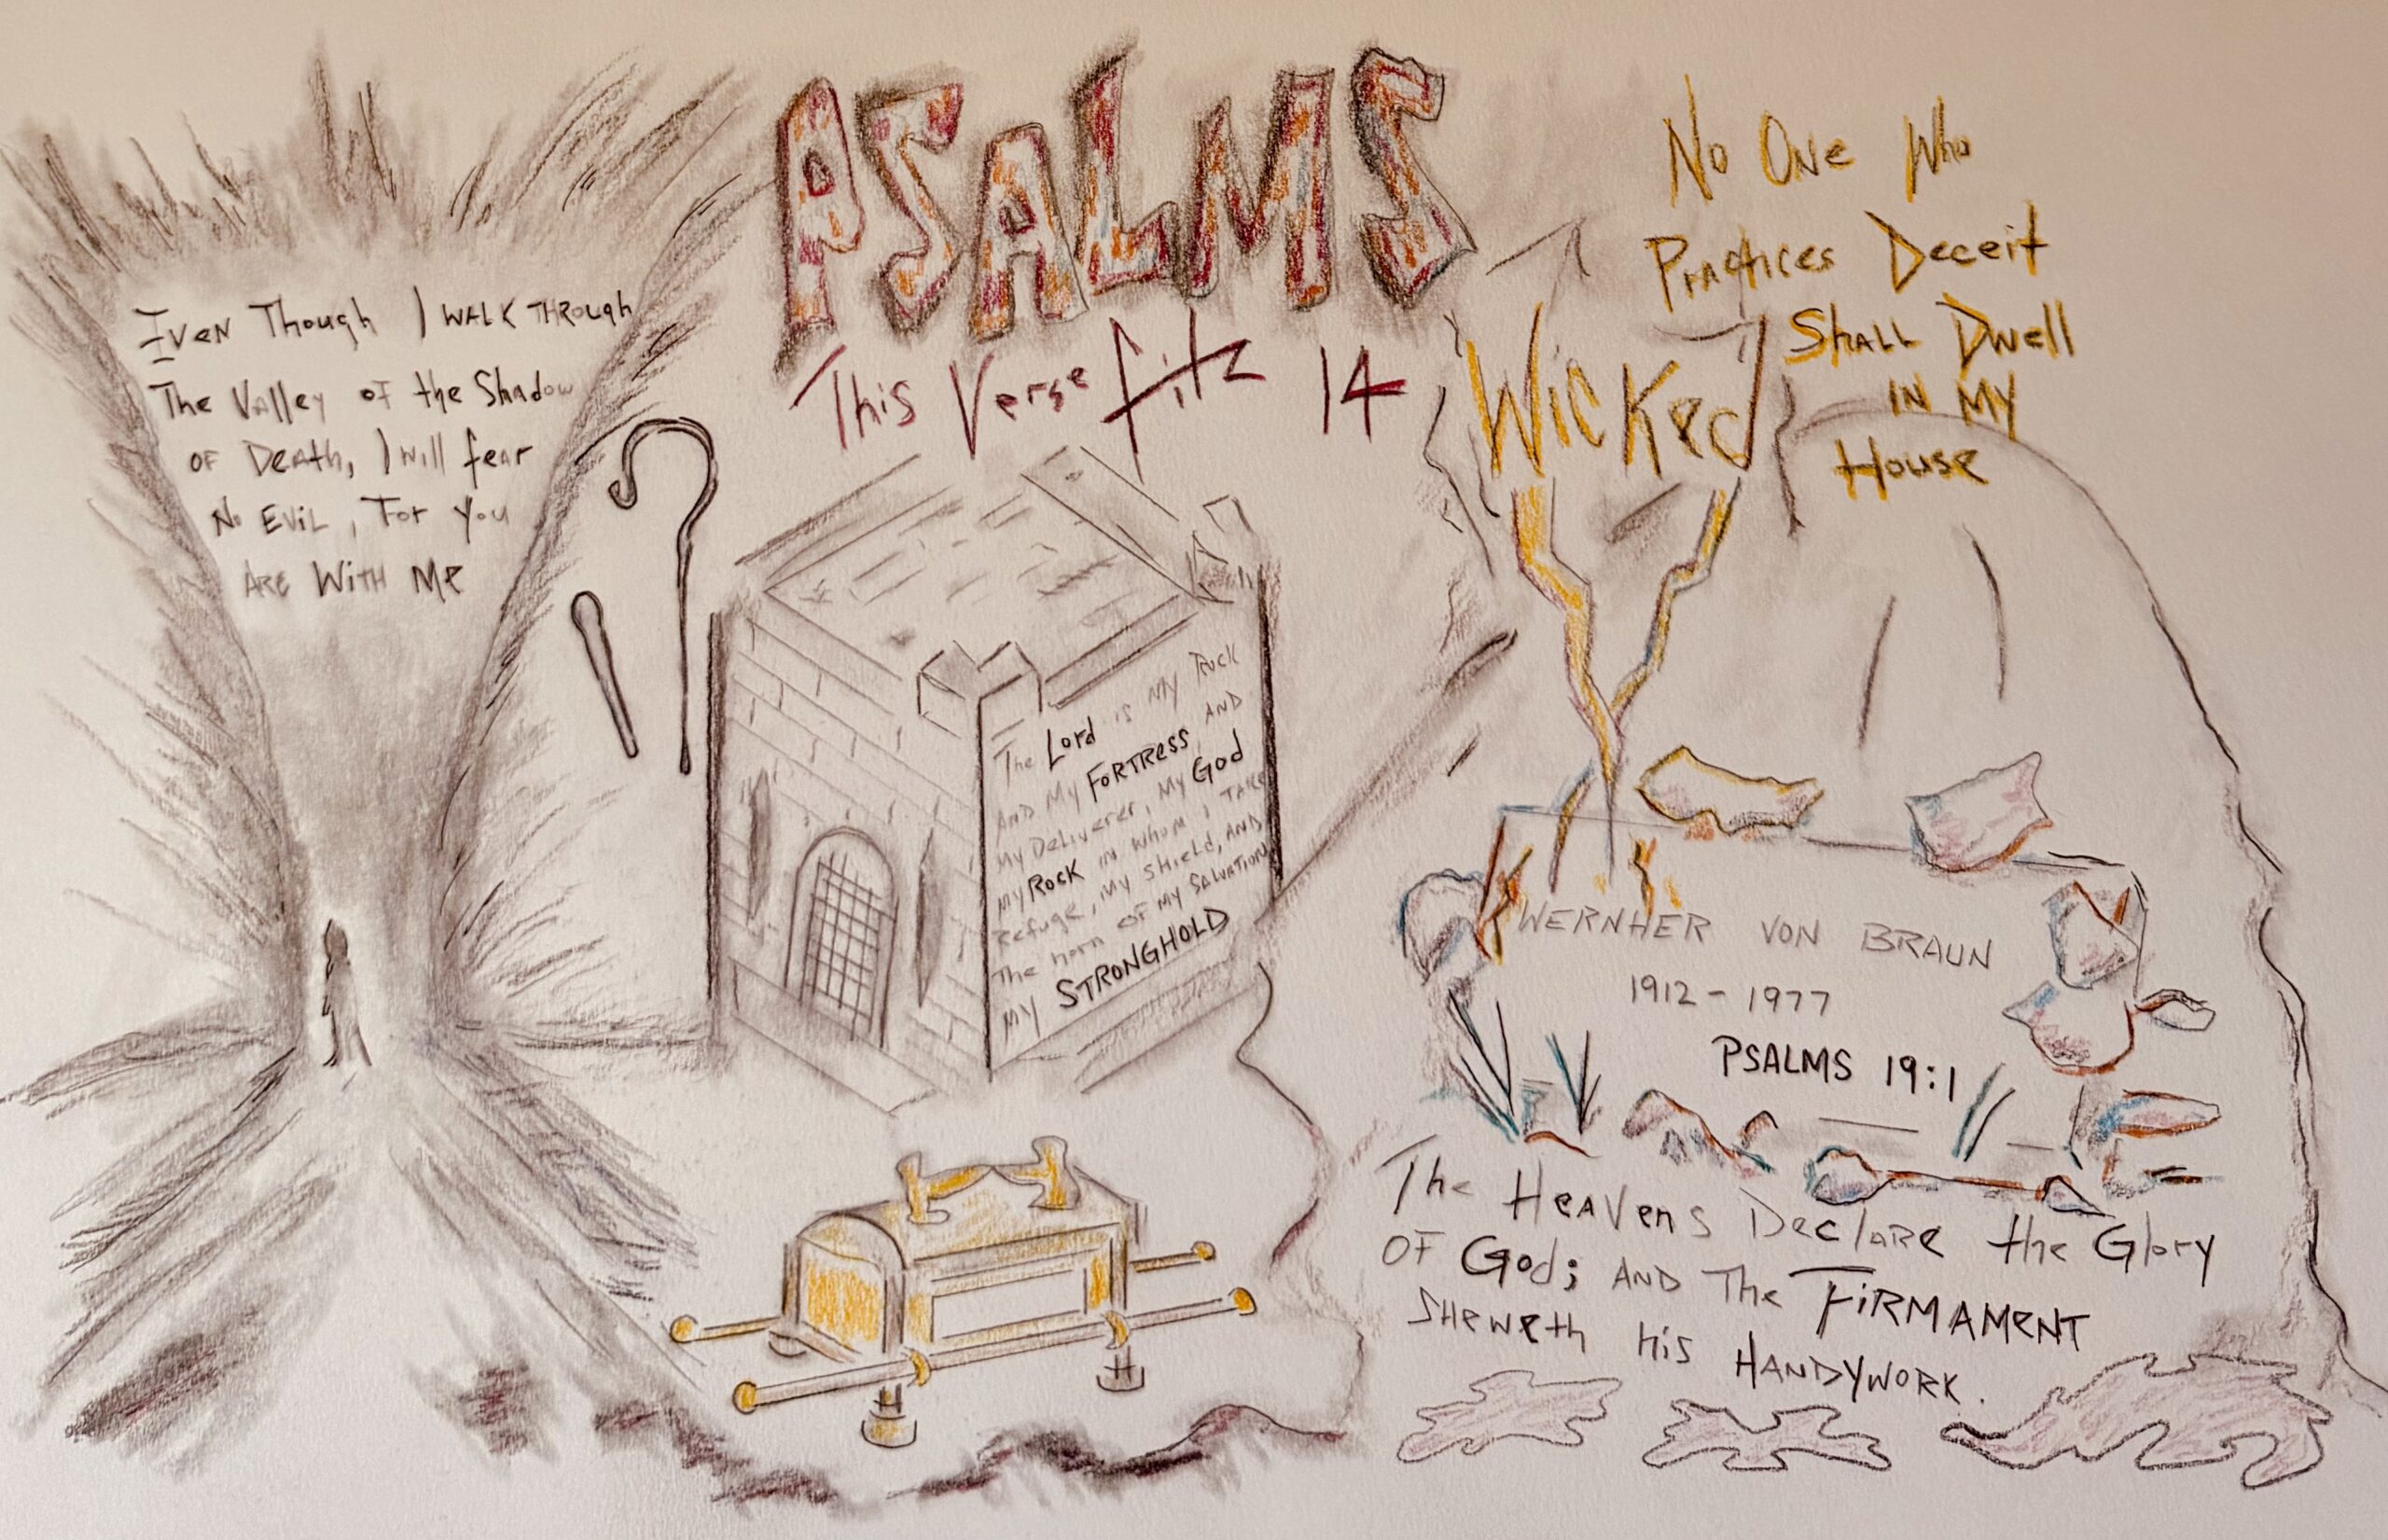 PSALMS
This Verse fitz 14
Even Though I WALK THROUGH
The Valley of the Shadow
OF Death, I will fear
No EviL, For you
ARE With Me
No One Who
Practices Deceit
Shall Dwell
IN MY
House
Wicked
The Lord is My Rock
AND My FORTRESS, AND
My Deliverer, My God
My Rock in whom i TAKE
Refuge, My shield, AND
The horn OF My SALVATION
My STRONGHOLD
WERNHER VON BRAUN
1912 - 1977
PSALMS 19:1
The Heavens Declare the Glory
OF God; AND The FiRMAMENT
SHeweth His HANDYWORK.